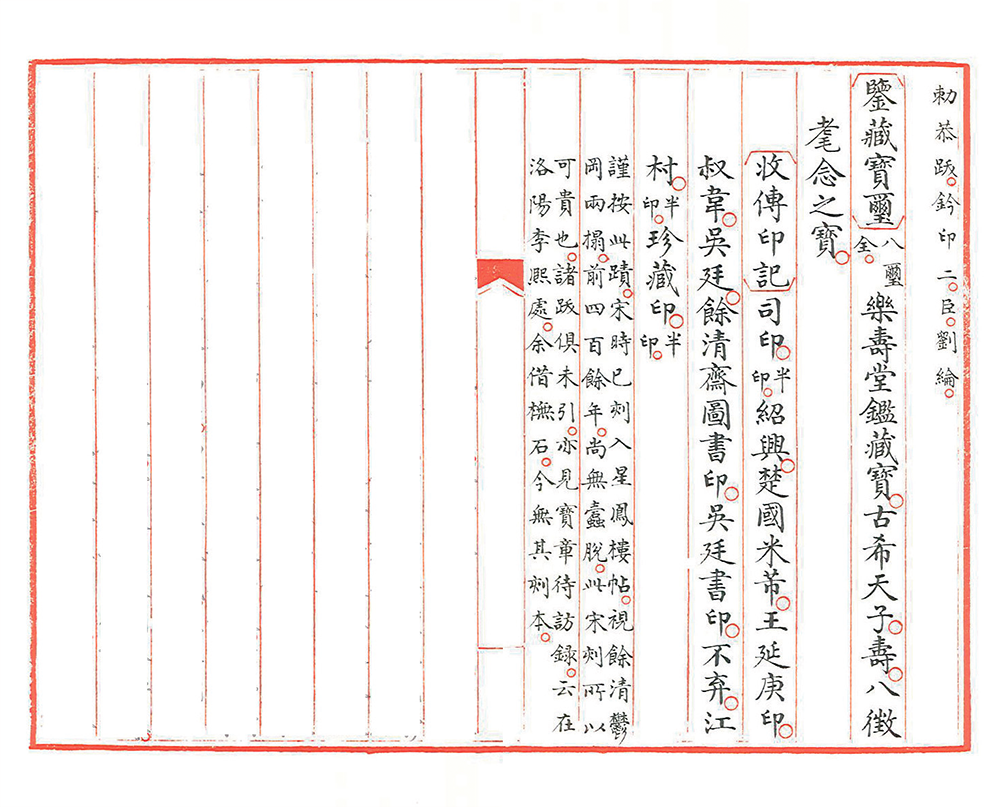 勅恭跋。鈐印二。臣。劉綸。
鑒藏寶璽 八璽全。 樂壽堂鑑藏寶。古希天子。壽。八徵
耄念之寶。
收傳印記 司印。半印。紹興。楚國米芾。王延庚印。
叔韋。吳廷。餘清齋圖書印。吳廷書印。不弃。江
村。半印。珍藏印。半印。
謹按此蹟。宋時已刻入星鳳樓帖。視餘清鬱
岡兩搨。前四百餘年。尚無蠹脫。此宋刻所以
可貴也。諸跋俱未引。亦見寶章待訪錄。云在
洛陽李熙處。余借橅石。今無其刻本。